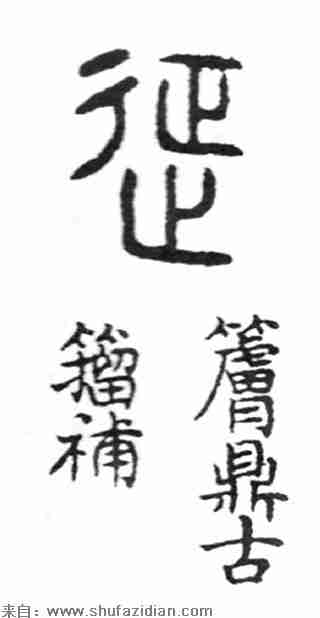 鼎古
籀補
来自：www.shufazidian.com